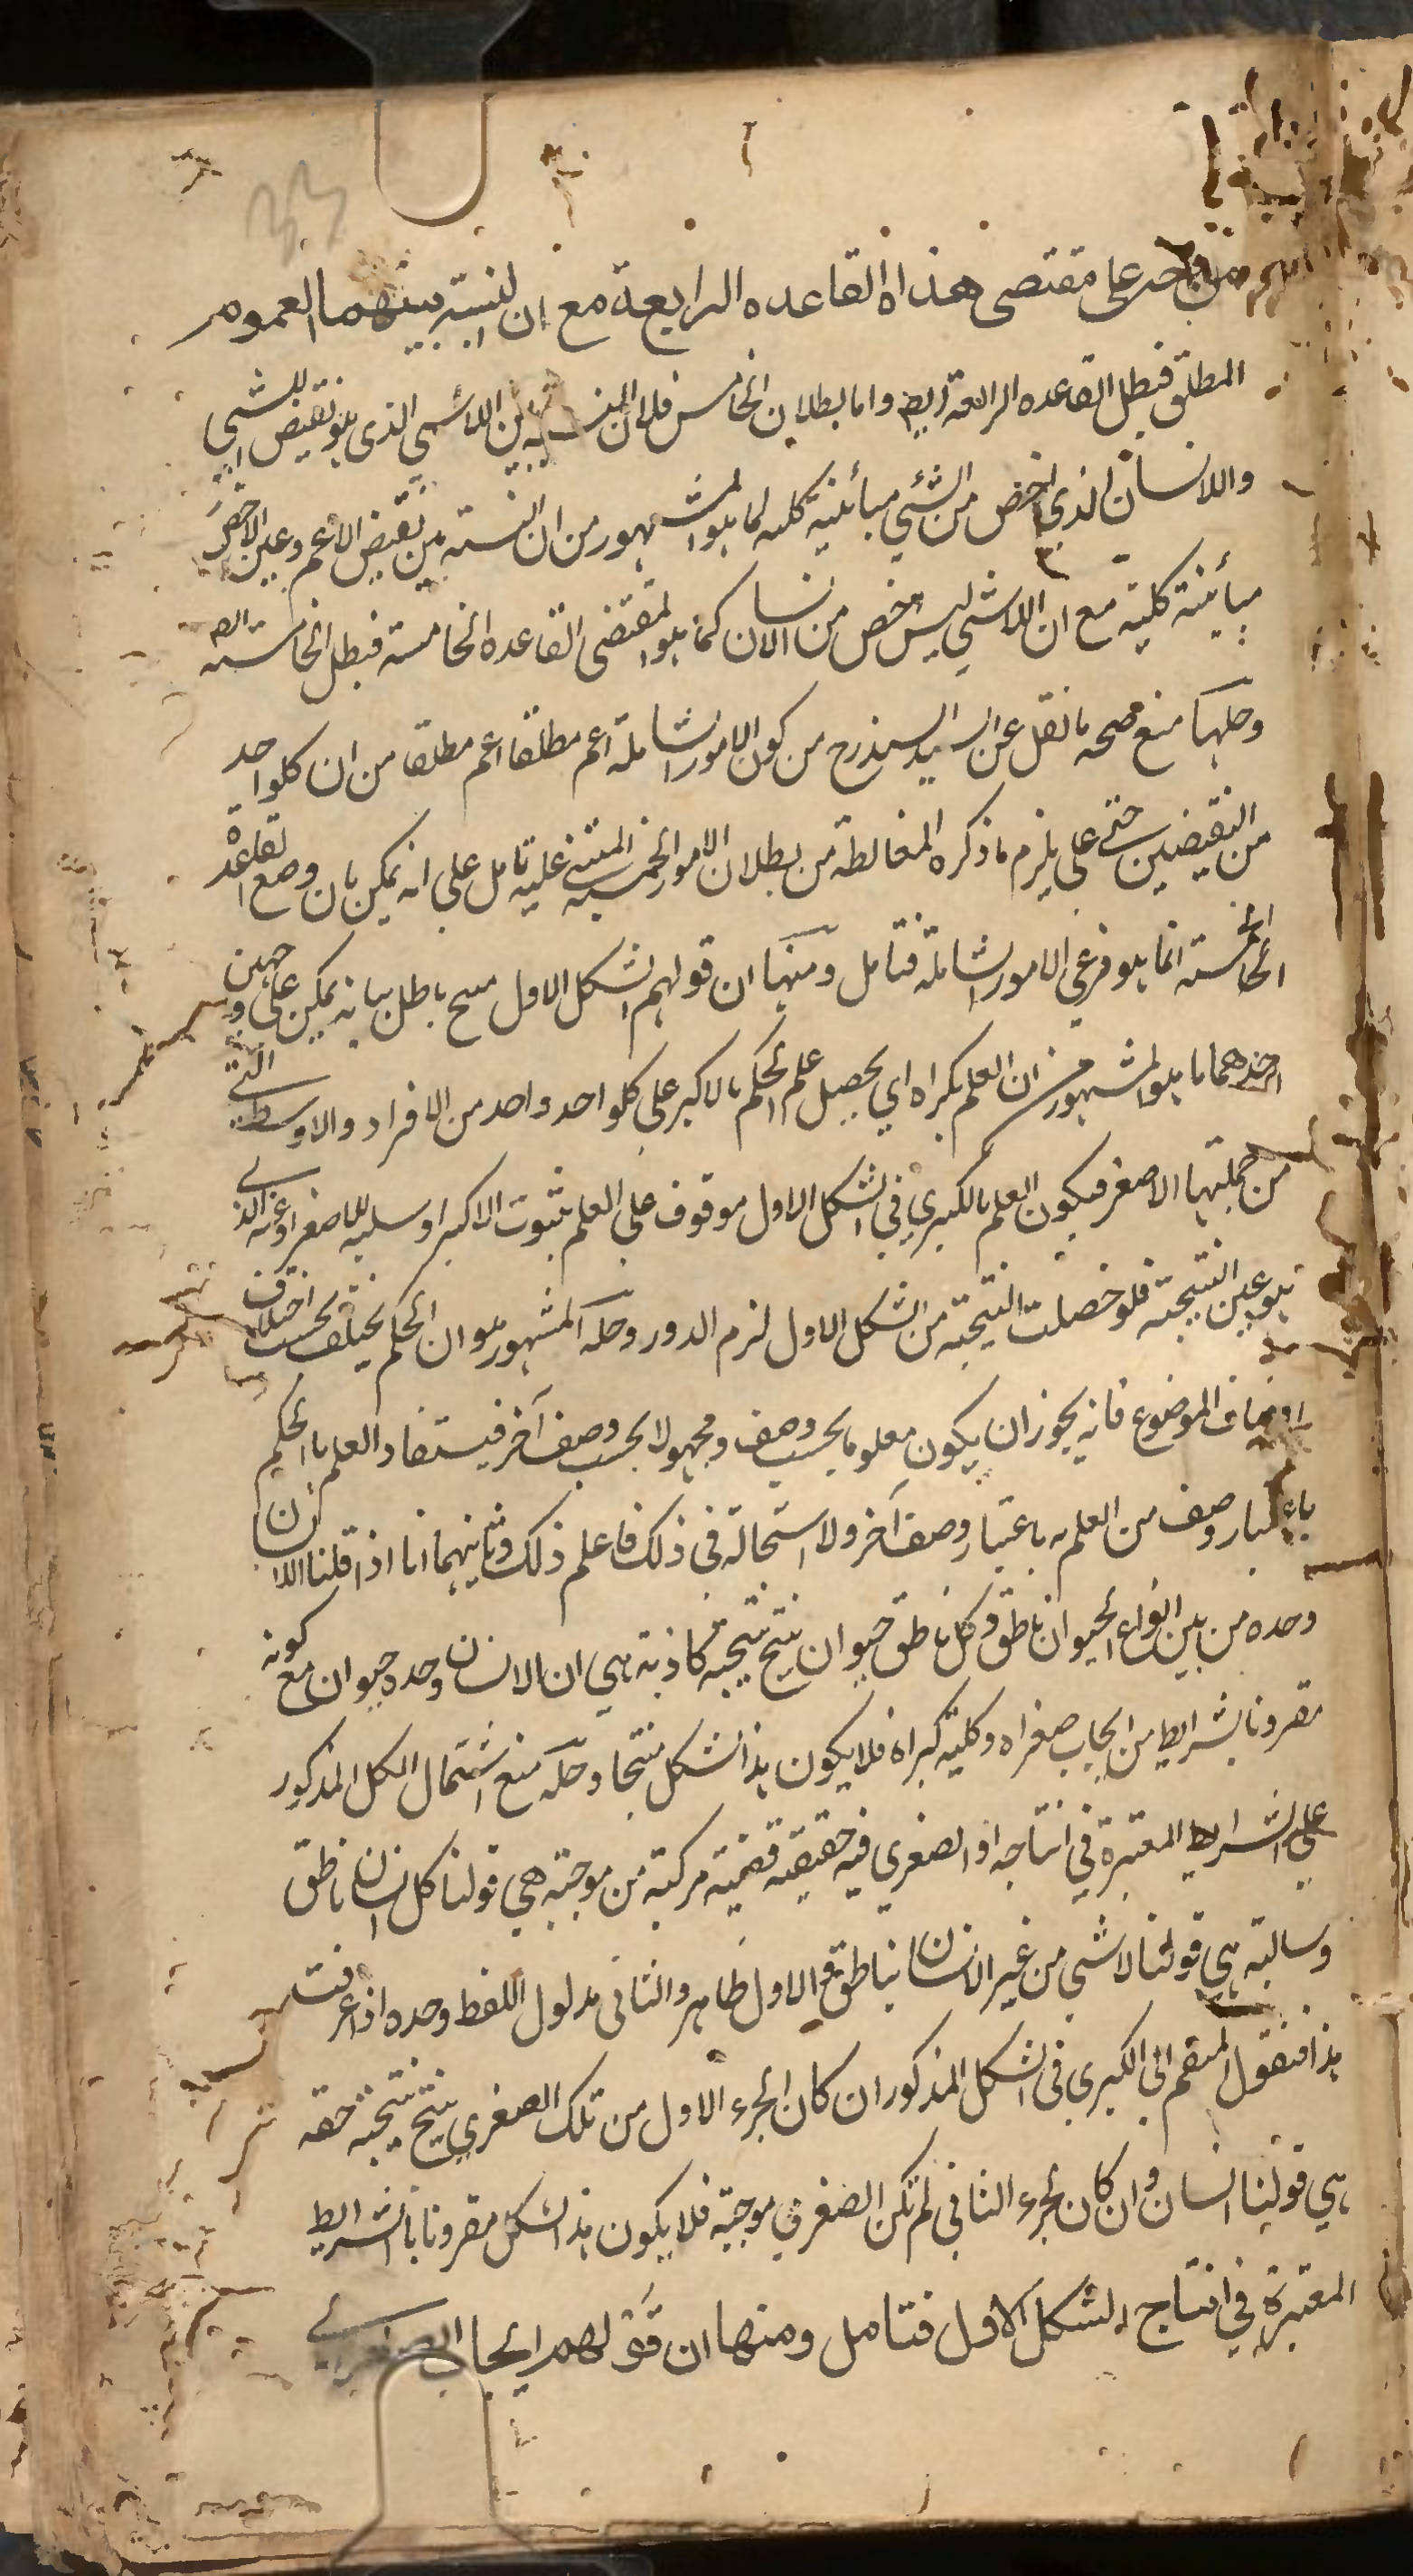 من وجه على مقتضى هذاه القاعده الرابعة مع ان النسبة بينهما العموم
المطلق فبطل القاعده الرابعة ايضا واما بطلان الخامس فلان النسبة بين اللاشي الذي هو نقيض الشي
واللانسان الذي اخص من الشئي مبائنية كليه لما هو المشهور من ان النسبته بين نقيض الاعم وعين الاخص
مبأينة كلية مع ان اللاشي ليس اخص من الانسان كما هو المقتضى القاعده الخامسة فبطل الخامسته ايضا
وحلها منع صحه ما نقل عن السيد السند رح من كون الامور الشاملة اعم مطلقا اعم مطلقا من ان كلواحد
من النقيضين حتى على يلزم ما ذكره المغالطة من بطلان الامور الخمسه المتنى عليه تامل على انه يمكن بان وضع القاعدة
الخامسته انما هو في غير الامور الشاملة فتامل ومنها ان قولهم الشكل الاول منتج باطل بيانه يمكن على وجهين
احدهما ما هو المشهور من ان العلم بكبراه اي يحصل علم الحكم بالاكبر على كلواحد واحد من الافراد والاوسط التي
من جملتها الاصغر فيكون العلم بالكبري في الشكل الاول موقوف على العلم بثبوت الاكبر او سلبه للاصغر او عنه الذي
هو عين النتيجة فلو حصلت النتيجته من الشكل الاول لزم الدور وحله المشهور هو ان الحكم يختلف بحسب اختلاف
اوصاف الموضوع فانه يجوز ان يكون معلوما بحسب وصف ومجهولا بحسب وصف آخر فيستفاد العلم باالحكم
باعتبار وصف من العلم به باعتبار وصف آخر ولا استحالة في ذلك فاعلم ذلك وثانيهما انا اذا قلنا الانسان
وحده من بين انواع الحيوان ناطق وكل ناطق حيوان ينتج نتيجة كاذبة هي ان الانسان وحده حيوان مع كونه
مقرونا بشرايط من ايجاب صغراه وكلية كبراه فلا يكون هذا الشكل منتجا وحله منع اشتمال الكل المذكور
على الشرايط المعتبرة في انتاجه اذ الصغري فيه حقيقته قضية مركبته من موجبته هي قولنا كل انسان ناطق
وسالبته هي قولنا لاشي من غير الانسان بناطق والاول ظاهر والثاني مدلول اللفظ وحده اذا عرفت
هذا فنقول المنضم الي الكبري في الشكل المذكور ان كان الجزء الاول من تلك الصغري ينتج نتيجة حقه
هي قولنا انسان وان كان الجزء الثاني لم تكن الصغري موجبة فلا يكون هذا الشكل مقرونا باالشرايط
المعتبرة في انتاج الشكل الاول فتامل ومنها ان قولهم ايجاب الصغرى